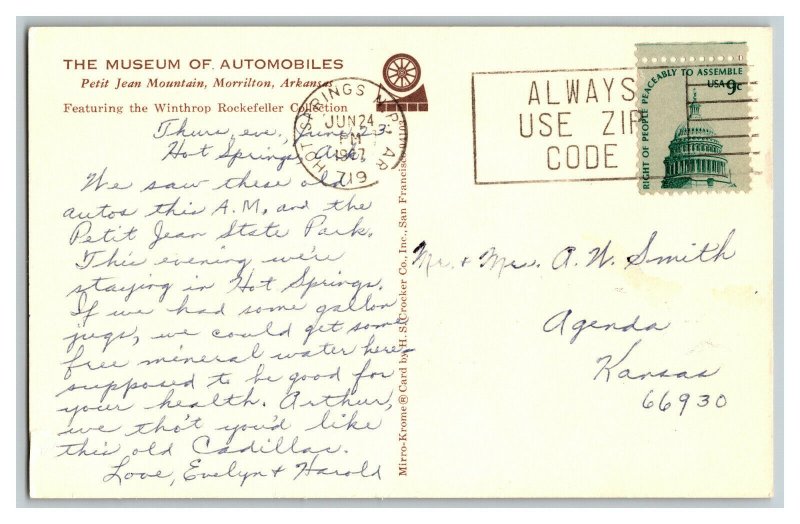 THE MUSEUM OF AUTOMOBILES
Petit Jean Mountain, Morrilton, Arkansas
Featuring the Winthrop Rockefeller Collection
Thurs. eve, June 23
Hot Springs, Ark.
We saw these old
autos this A.M. and the
Petit Jean State Park.
This evening we're
staying in Hot Springs.
If we had some gallon
jugs, we could get some
free mineral water here-
supposed to be good for
your health. Arthur,
we tho't you'd like
this old Cadillac.
Love, Evelyn + Harold
Mirro-Krome® Card by H. S. Crocker Co., Inc., San Francisco
HOT SPRINGS N.P. AR
JUN 24
PM
719
ALWAYS
USE ZIP
CODE
RIGHT OF PEOPLE PEACEABLY TO ASSEMBLE
USA 9c
Mr. + Mrs. A. W. Smith
Agenda
Kansas
66930